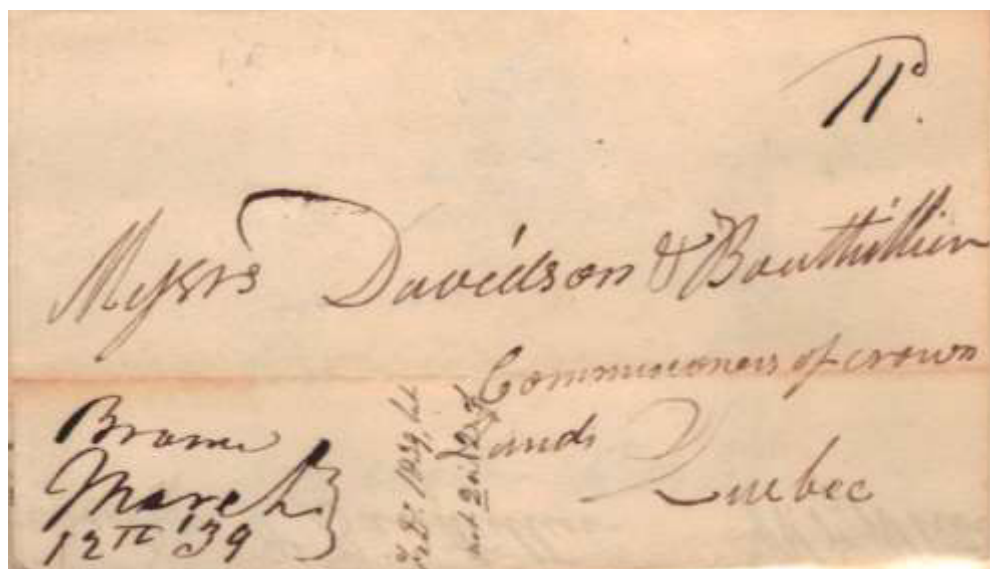 11d.
Messrs Davidson & Bouthillier
Commissioners of crown
Lands
Quebec
Brome
March
12th '39